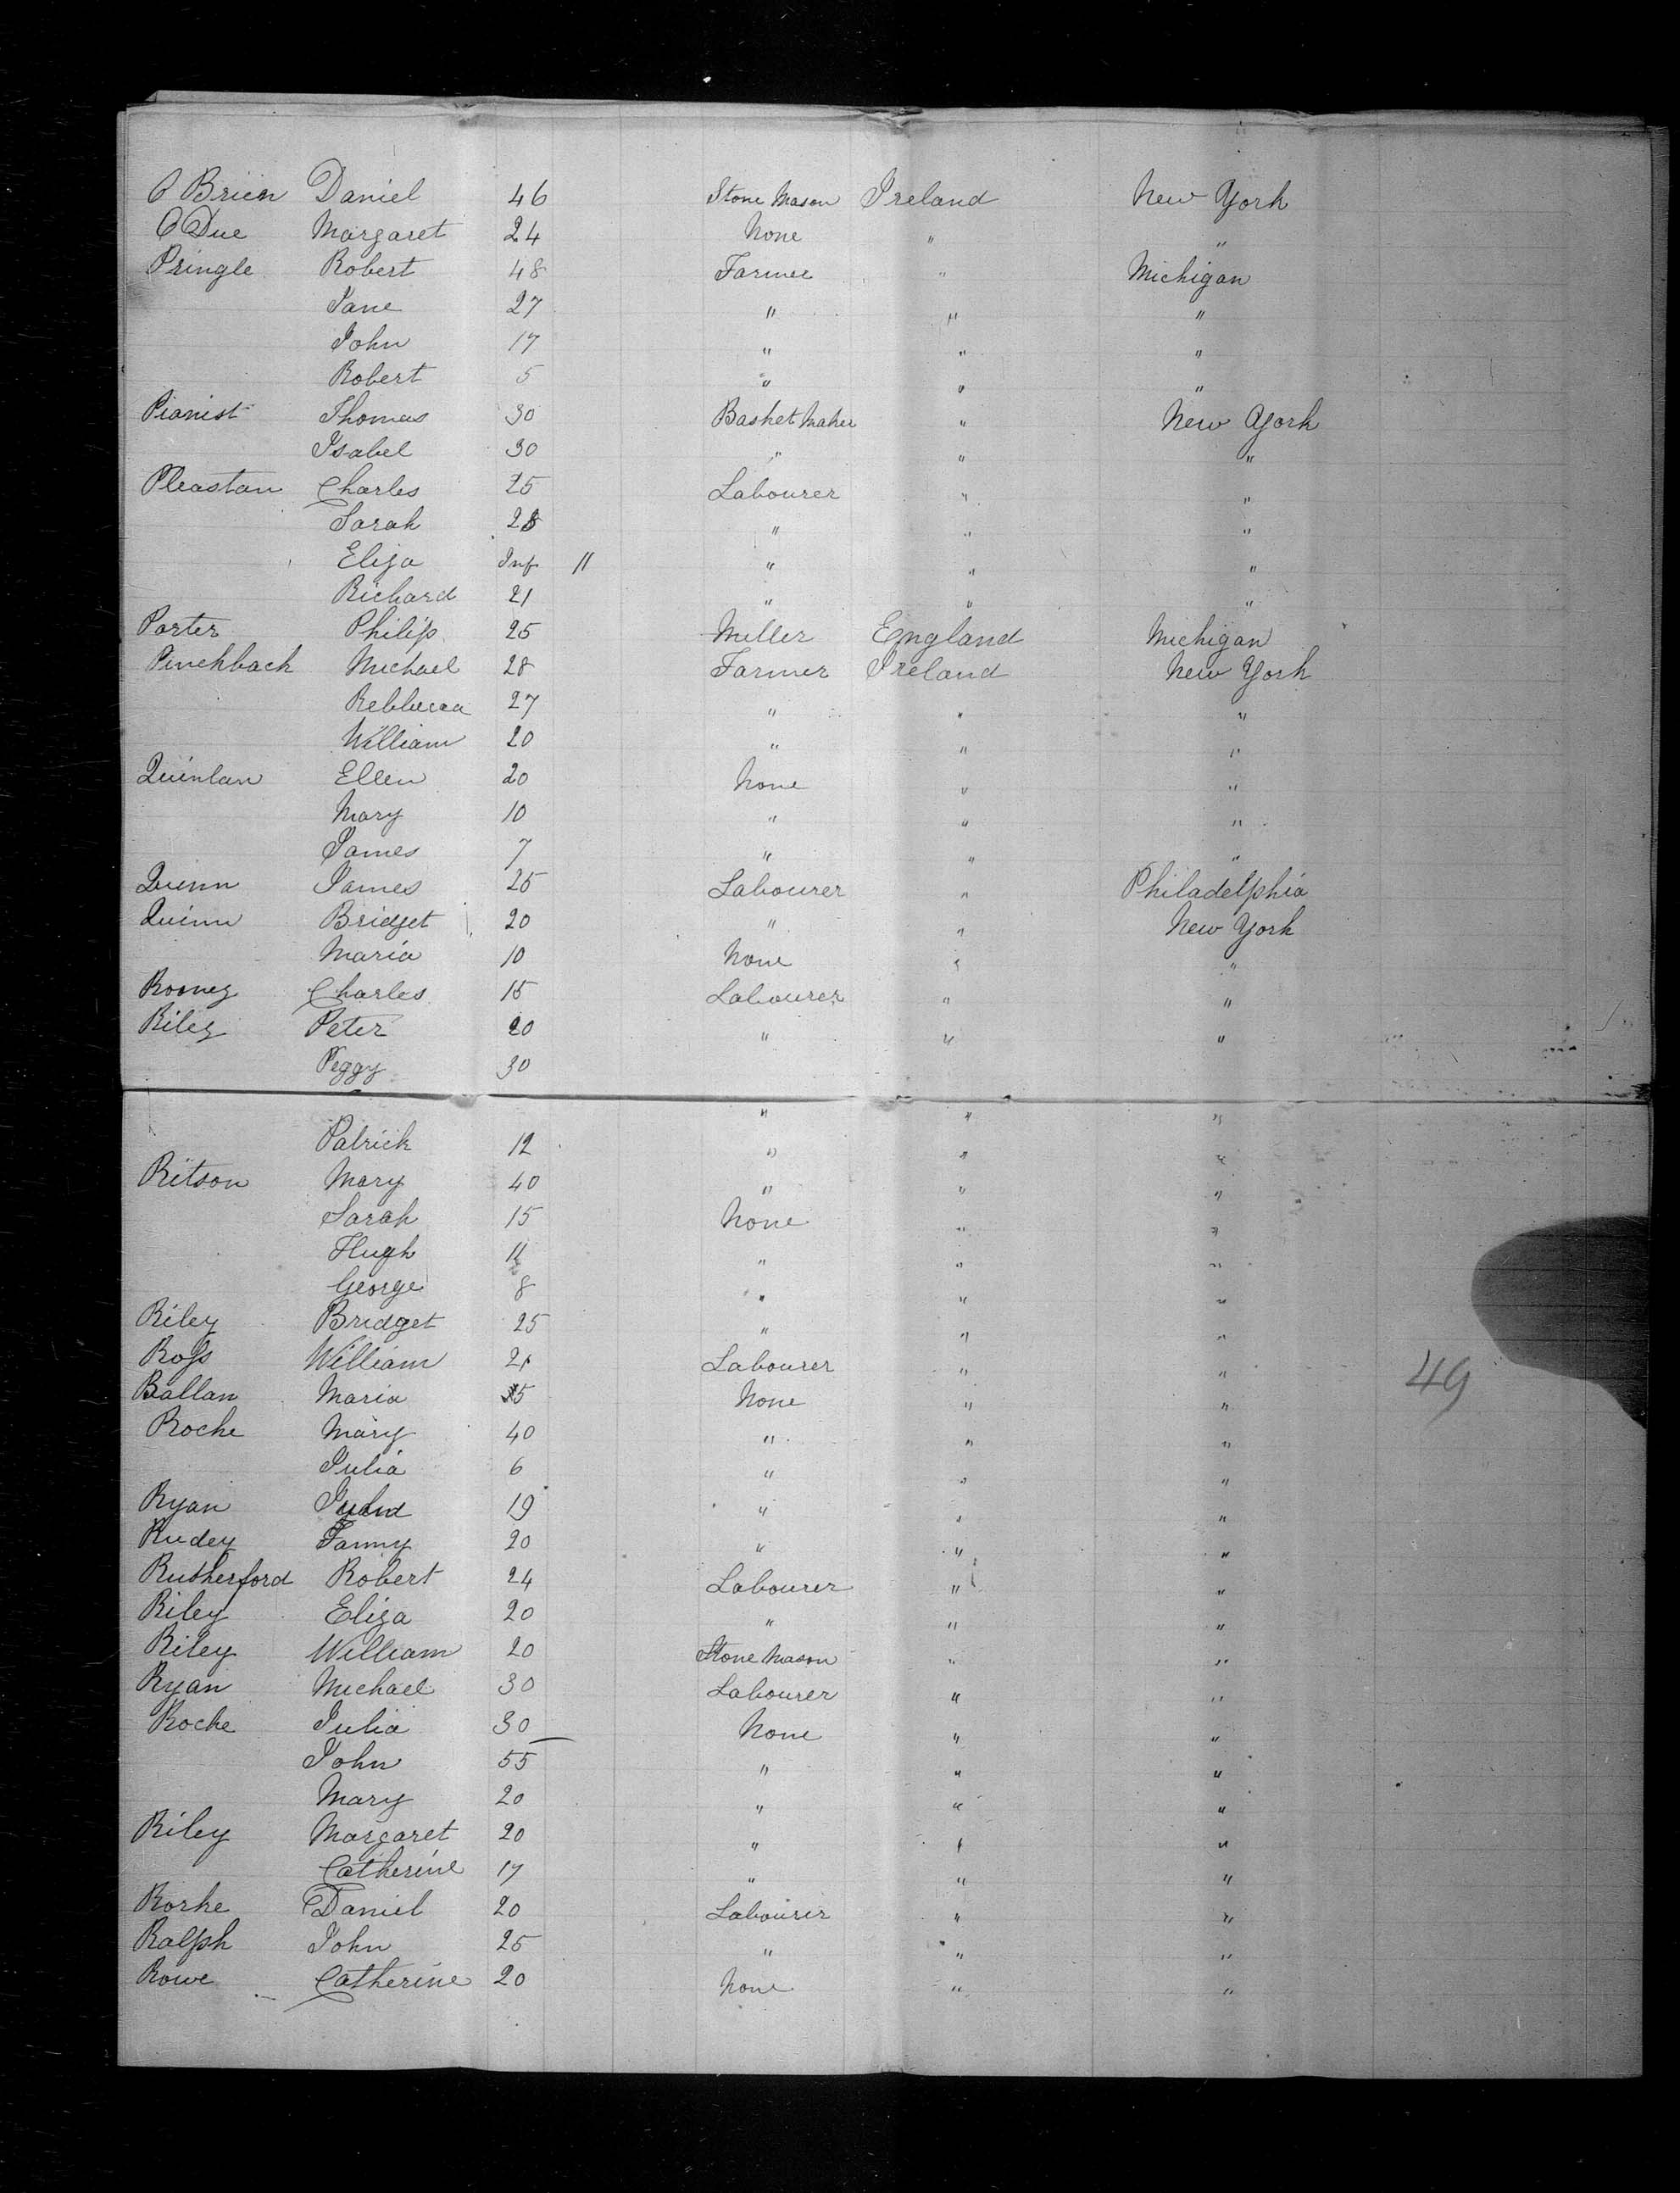 O Brien Daniel 46 Stone Mason Ireland New York
O Due Margaret 24 None " "
Pringle Robert 48 Farmer " Michigan
Jane 27 " " "
John 17 " " "
Robert 5 " " "
Pianist Thomas 30 Basket Maker " New York
Isabel 30 " " "
Pleastan Charles 25 Labourer " "
Sarah 28 " " "
Eliza Inf 11 " " "
Richard 21 " " "
Porter Philip 25 Miller England Michigan
Pinchback Michael 28 Farmer Ireland New York
Rebbecca 27 " " "
William 20 " " "
Quinlan Ellen 20 None " "
Mary 10 " " "
James 7 " " "
Quinn James 25 Labourer " Philadelphia
Quinn Bridget 20 " " New York
Maria 10 None " "
Rooney Charles 15 Labourer " "
Riley Peter 20 " " "
Peggy 30 " " "
Patrick 12 " " "
Ritson Mary 40 " " "
Sarah 15 None " "
Hugh 11 " " "
George 8 " " "
Riley Bridget 25 " " "
Ross William 21 Labourer " "
Ballan Maria 35 None " "
49
Roche Mary 40 " " "
Julia 6 " " "
Ryan 19 " " "
Rudey Fanny 20 " " "
Rutherford Robert 24 Labourer " "
Riley Eliza 20 " " "
Riley William 20 Stone Mason " "
Ryan Michael 30 Labourer " "
Roche Julia 30 None " "
John 55 " " "
Mary 20 " " "
Riley Margaret 20 " " "
Catherine 17 " " "
Rorke Daniel 20 Labourer " "
Ralph John 25 " " "
Rowe Catherine 20 None " "